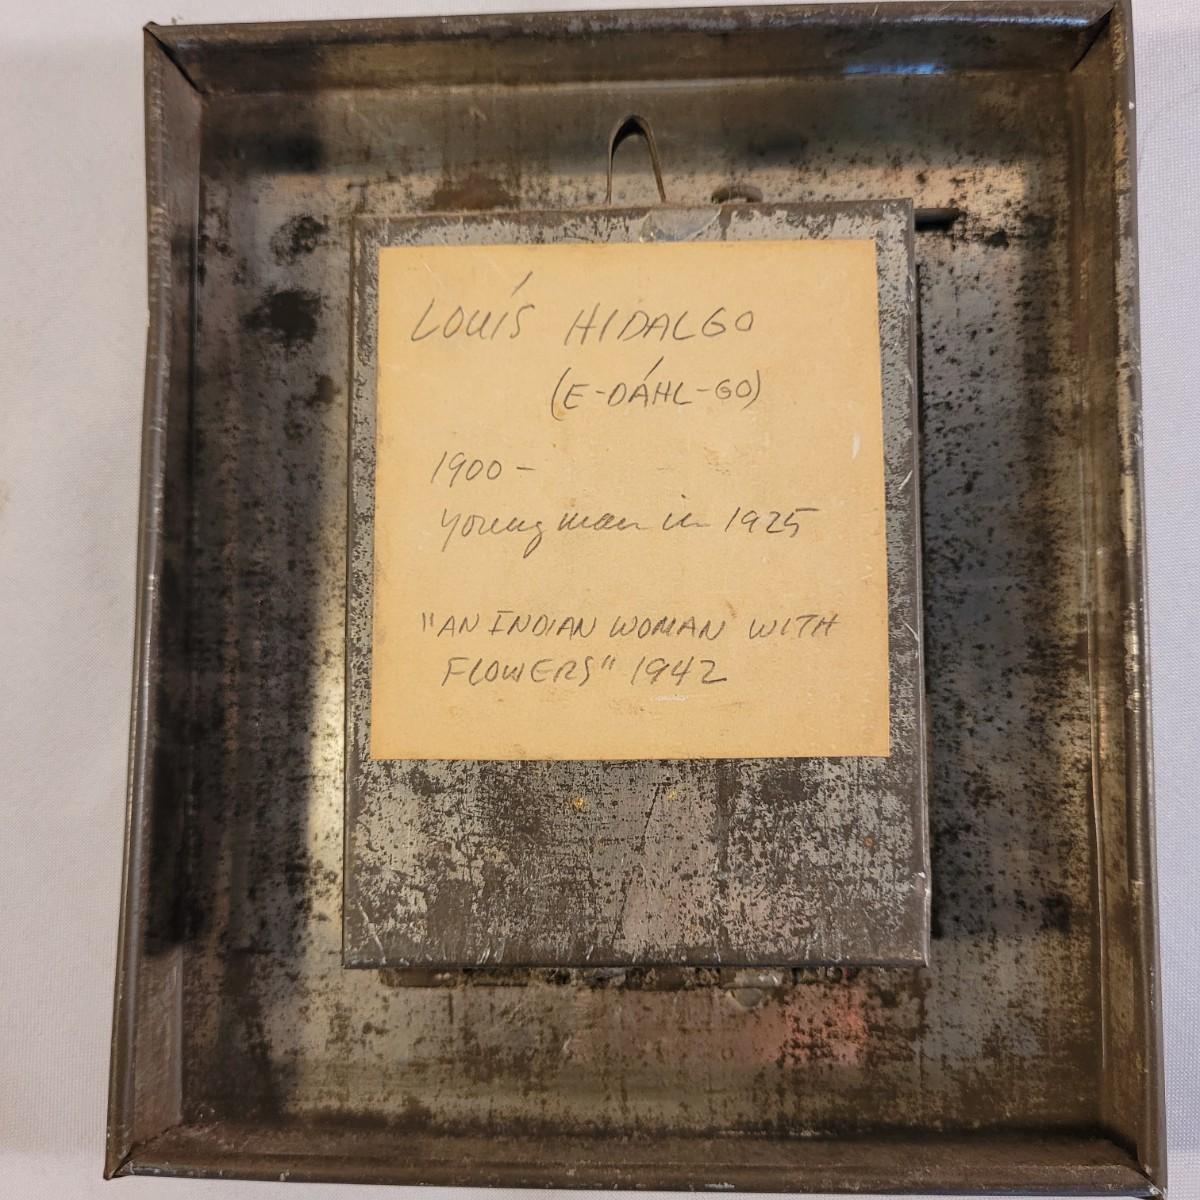 LOUÍS HIDALGO
(E-DÁHL-GO)
1900-
young man in 1925
"AN INDIAN WOMAN WITH
FLOWERS" 1942